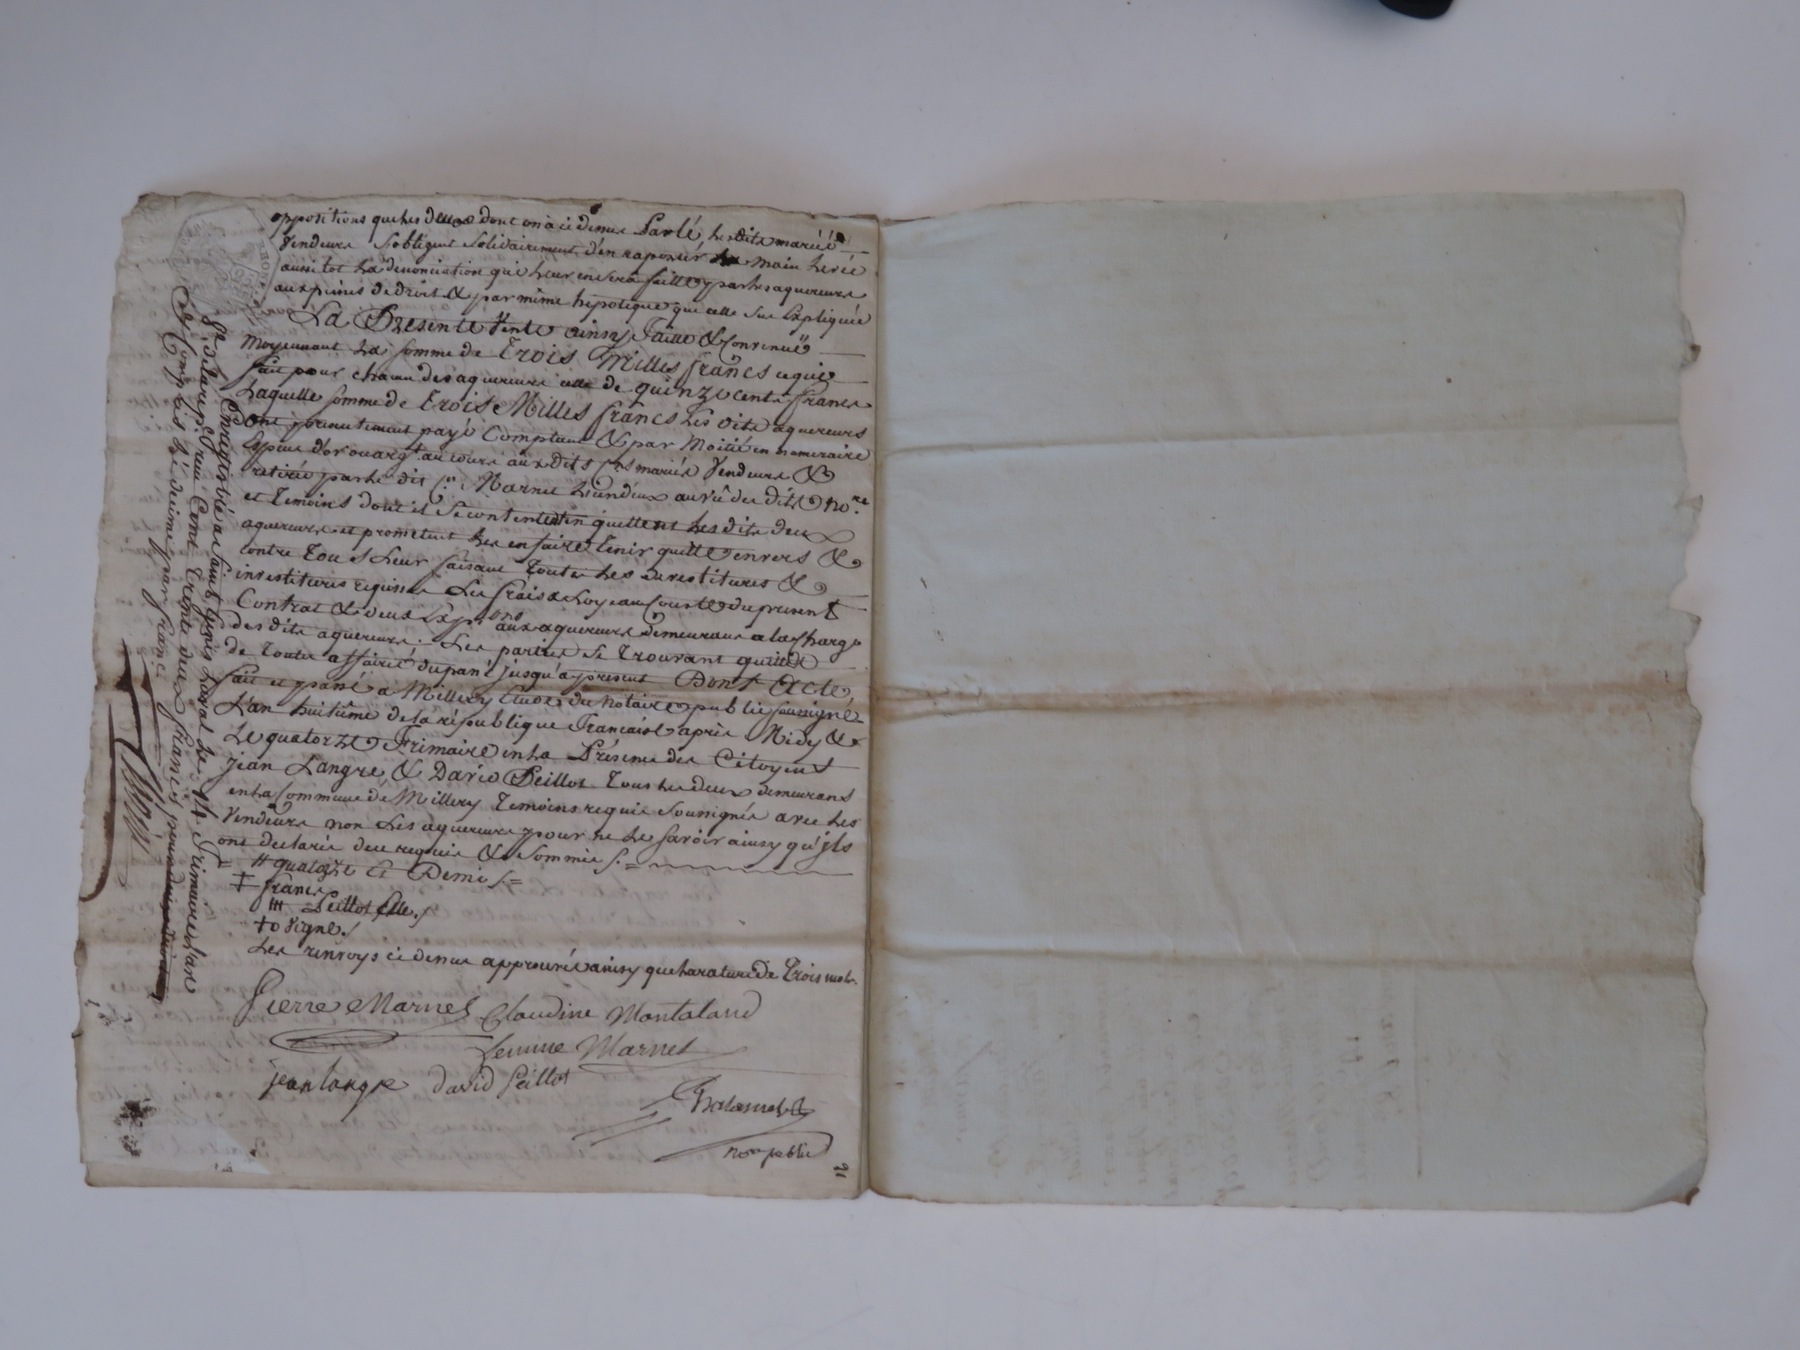 oppositions que les deux dont on à ci dessus Parlé, les dits mariés
Vendeurs Sobligent Solidairement d'en raporter la main levée
aussitot La denonciation qui Leur en sera faitte par les aquereurs
aux peines de droit & par même hipotèque que celle Sus Expliquée
La Presente Vente ainsy Faitte & Convenuë
moyennant La somme de Trois Milles francs ce qui
fait pour chacun des aquereurs celle de quinze cents francs
Laquelle Somme de Trois Milles francs Les dits aquereurs
ont presentement payé Comptant & par Moitié en numeraire
Espece d'or ou argt. au cours aux dits Srs mariés Vendeurs &
retirée par le dit Sr. Marnet L'un d'eux au vû des dits Nore.
et Temoins dont il Se contentent en quittent Les dits deux
aquereurs et promettent Les en faire Tenir quitte envers &
contre Tous Leur faisant Toutes Les devestitures &
investitures requises Les frais & Loyeaux Couste du present
Contrat & deux Expons aux aquereurs Demeurans a la charge
des dits aquereurs. Les parties Se Trouvant quittes
de Toutes affaires du passé jusqu'a present Dont Acte
fait et passé a Millery Etude du Notaire public soussigné
L'an huitième de la république Francaise après Midy &
Le quatorze Frimaire en La Présence des Citoyens
Jean Langre & David Peillot Tous les deux demeurans
en La Commune de Millery Temoins requis Soussignés avec Les
Vendeurs non Les aquereurs pour ne Le Savoir ainsy qu'ils
ons declarés de ce requis & Sommés /.=
# quatorze et Demi /.=
‡ francs
### Peillot fille./
+o Vigne./
Les renvoys ci dessus approuvés ainsy que La rature de Trois mots.
Pierre Marnet Claudine Montaland
femme Marnet
jean langre david peillot
nore public
Enregistré a Saint Genis Laval Le 14 Frimaire L'an
8e. de la rep. Reçu Cent Trente deux francs
Y Compris Le decime par franc.